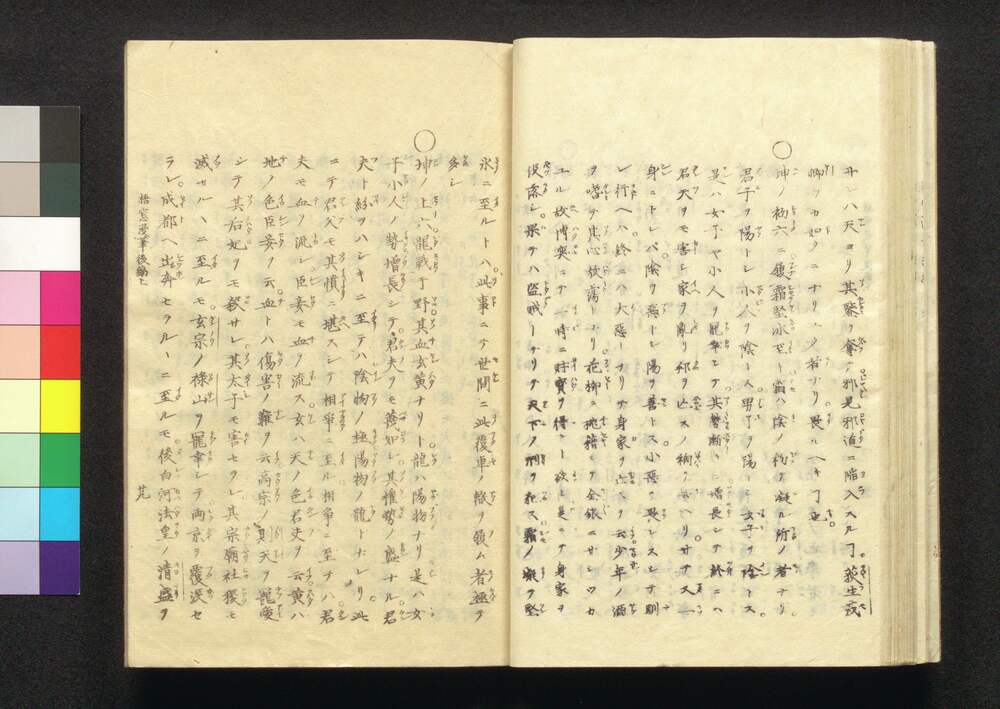 サレハ天ヨリ其祭ヲ奪テ邪見邪道ニ陥入スル丁荻生茂
卿ラカ如クニナリ者ナリ畏ルヘキ丁也
坤ノ初六ニ履霜堅氷至ト霜ハ陰ノ物ノ凝ル所ノ者ナリ
君子ヲ陽トシ小人ヲ陰ト人男子ヲ陽トシ女子ヲ陰トス
是ハ女子ヤ小人ヲ寵幸シテ其勢漸ニ増長シテ終ニハ
君夫ヲモ害シ家ヲ亂リ邦ヲ亡スノ禍
身ニトレバ陰ヲ惡トシ陽ヲ善トス小惡ヲ畏レスシテ馴
レ行ヘハ終ニハ大惡トナリテ身家ヲ亡スヲ云少年ノ酒
ヲ嗜テ其心放蕩トナリ花柳ニ耽
ユル故博奕ニテ一時ニ財寳ヲ得ント欲シ是ニテ身家ヲ
没落シ果テハ盗賊トナリテ天下ノ刑ヲ犯ス霜ノ凝ヲ堅
氷ニ至ルトハ此事ニテ世間ニ此覆車ノ轍ヲ領ム者極テ
多シ
坤ノ上六龍戰于野其血玄黄ナリト龍ハ陽物ナリ是ハ女
子小人ノ勢増長シテ君夫ヲモ蔑如シ其權勢ノ盛ナル君
夫ト紛ラハシキニ至テハ陰物ノ極陽物ノ龍トナレリ此
ニテ君父モ其憤ニ堪スシテ相爭ニ至ル相爭ニ至テハ君
夫モ血ヲ流シ臣妾モ血ヲ流ス玄ハ天ノ色君夫ヲ云黄ハ
地ノ色臣妾ヲ云血トハ傷害ノ難ヲ云高宗ノ武天ヲ寵愛
シテ其后妃ヲモ殺サレ其太子モ害セラレ其宗廟社稷モ
滅サルヽニ至ルモ玄宗ノ祿山ヲ寵幸シテ両京ヲ覆没セ
ラレ成都ヘ出奔セラルヽニ至ルモ後白河法皇ノ清盛ヲ
梧窓漫筆後編上